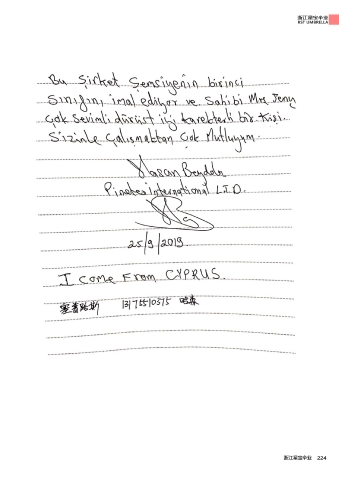 浙江星宝伞业
RST UMBRELLA
Bu Şirket Şemsiyenin birinci
Sınıfını imal ediyor ve Sahibi Mrs Jeny
Çok Sevimli dürüst iyi karekterli bir kişi.
Sizinle Çalışmaktan Çok Mutluyum.
Hasan
International LTD.
25/9/2019
I come From CYPRUS.
塞普路斯
浙江星宝伞业 224